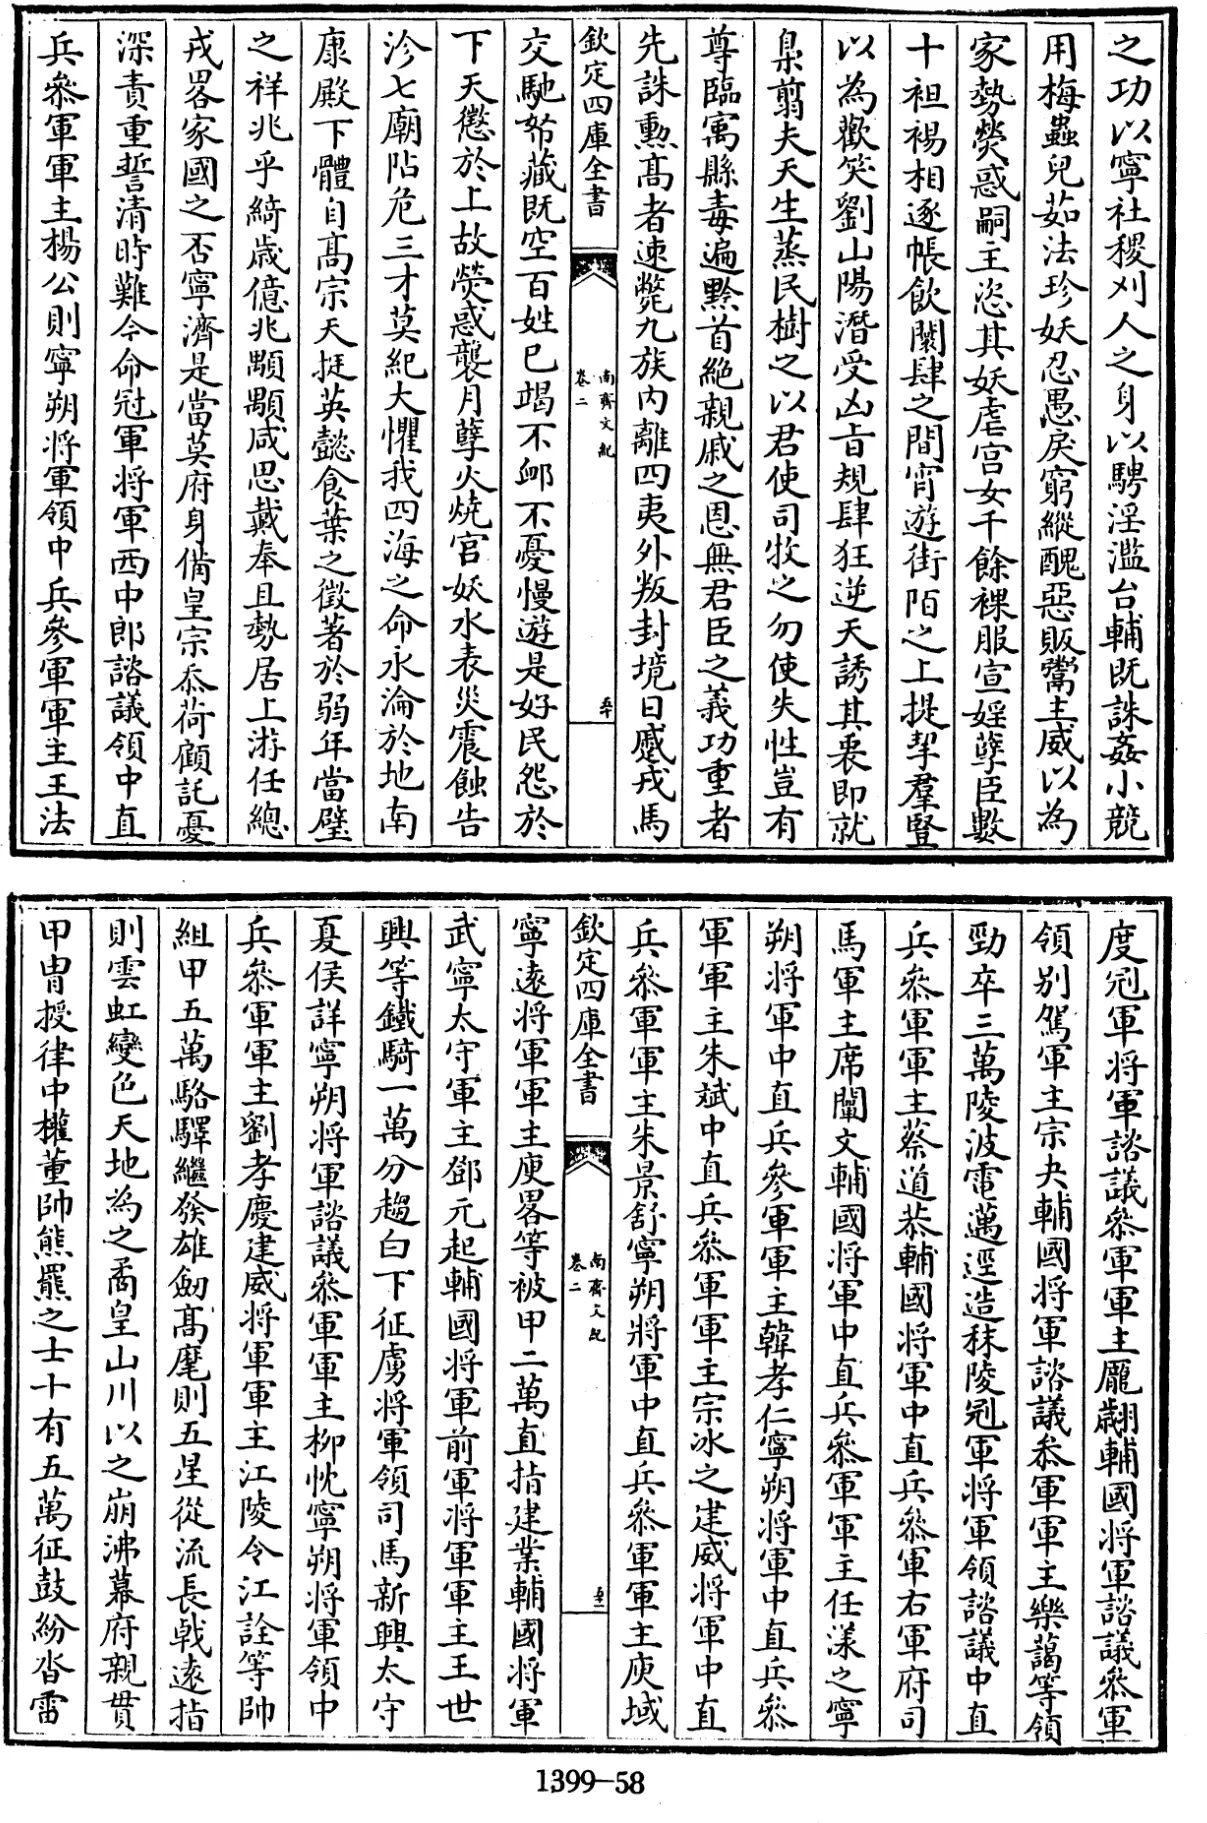 之功以寧社稷刈人之身以騁淫濫台輔既誅姦小競
用梅蟲兒茹法珍妖忍愚戾窮縱醜惡販鬻主威以為
家勢熒惑嗣主恣其妖虐宫女千餘裸服宣婬孽臣數
十袒裼相逐帳飲闤肆之間宵遊街陌之上提挈羣豎
以為歡笑劉山陽潛受凶㫖規肆狂逆天誘其衷即就
梟翦夫天生蒸民樹之以君使司牧之勿使失性豈有
尊臨寓縣毒遍黔首絶親戚之恩無君臣之義功重者
先誅勲髙者速斃九族内離四夷外叛封境日蹙戎馬
欽定四庫全書
南齊文紀
卷二
交馳帑藏既空百姓已竭不卹不憂慢遊是好民怨於
下天懲於上故熒惑襲月孽火燒宫妖水表災震蝕告
沴七廟阽危三才莫紀大懼我四海之命永淪於地南
康殿下體自髙宗天挺英懿食葉之徵著於弱年當璧
之祥兆乎綺歳億兆顒顒咸思戴奉且勢居上游任總
戎畧家國之否寧濟是當莫府身備皇宗忝荷顧託憂
深責重誓清時難今命冠軍將軍西中郎諮議領中直
兵叅軍軍主楊公則寧朔將軍領中兵參軍軍主王法
度冠軍將軍諮議叅軍軍主龎翽輔國將軍諮議叅軍
領别駕軍主宗夬輔國將軍諮議叅軍軍主樂藹等領
勁卒三萬陵波電邁逕造秣陵冠軍將軍領諮議中直
兵叅軍軍主蔡道恭輔國將軍中直兵叅軍右軍府司
馬軍主席闡文輔國將軍中直兵叅軍軍主任漾之寧
朔將軍中直兵參軍軍主韓孝仁寧朔將軍中直兵叅
軍軍主朱斌中直兵叅軍軍主宗冰之建威將軍中直
兵叅軍軍主朱景舒寧朔將軍中直兵叅軍軍主庾域
欽定四庫全書
南齊文紀
卷二
寧逺將軍軍主庾畧等被甲二萬直指建業輔國將軍
武寧太守軍主鄧元起輔國將軍前軍將軍軍主王世
興等鐵騎一萬分趨白下征虜將軍領司馬新興太守
夏侯詳寧朔將軍諮議叅軍軍主柳忱寧朔將軍領中
兵叅軍軍主劉孝慶建威將軍軍主江陵令江詮等帥
組甲五萬駱驛繼發雄劒髙麾則五星從流長戟逺指
則雲虹變色天地為之矞皇山川以之崩沸幕府親貫
甲胄授律中權董帥熊羆之士十有五萬征鼓紛沓雷
1399-58